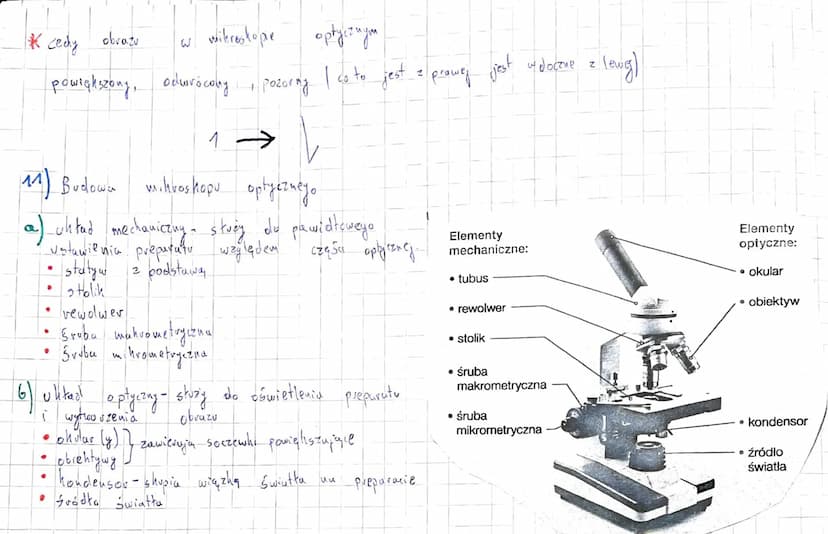 * cechy obrazu w mikroskopie optycznym
powiększony, odwrócony, pozorny (co to jest z prawej jest widoczne z lewej)
1 →
11) Budowa mikroskopu optycznego
a) układ mechaniczny - służy do prawidłowego
ustawienia preparatu względem części optycznej
• statyw z podstawą
• stolik
• rewolwer
• śruba makrometryczna
• śruba mikrometryczna
b) układ optyczny - służy do oświetlenia preparatu
i wytworzenia obrazu
• okular (y) } zawierają soczewki powiększające
• obiektywy
• kondensor - skupia wiązkę światła na preparacie
• źródło światła
Elementy
mechaniczne:
• tubus
• rewolwer
• stolik
• śruba
makrometryczna
• śruba
mikrometryczna
Elementy
optyczne:
• okular
• obiektyw
• kondensor
• źródło
światła